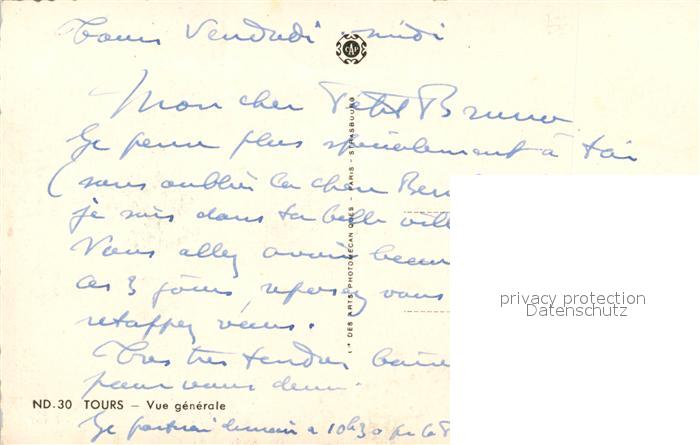 Tours Vendredi midi
CAP
Mon cher Petit Bruno
Je pense plus spécialement à toi
(sans oublier la chère
je suis dans ta belle
Vous allez avoir
ces 3 jours, reposez vous
retapez vous.
Très très tendres
pour vous deux.
ND.30 TOURS – Vue générale
Je partirai demain à 10h30
DES ARTS PHOTOMÉCANIQUES - PARIS - STRASBOURG
privacy protection
Datenschutz